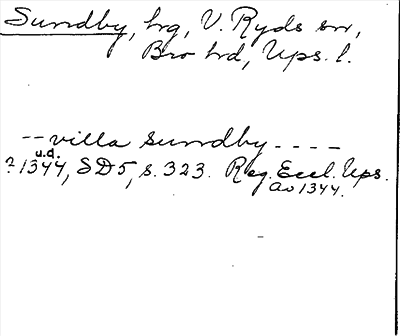 Sundby, hg, V. Ryds sn,
Bro hd, Ups. l.
-- villa sundby ----
u.d.
? 1344, SD5, s. 323. Reg. Eccl. Ups.
av 1344.